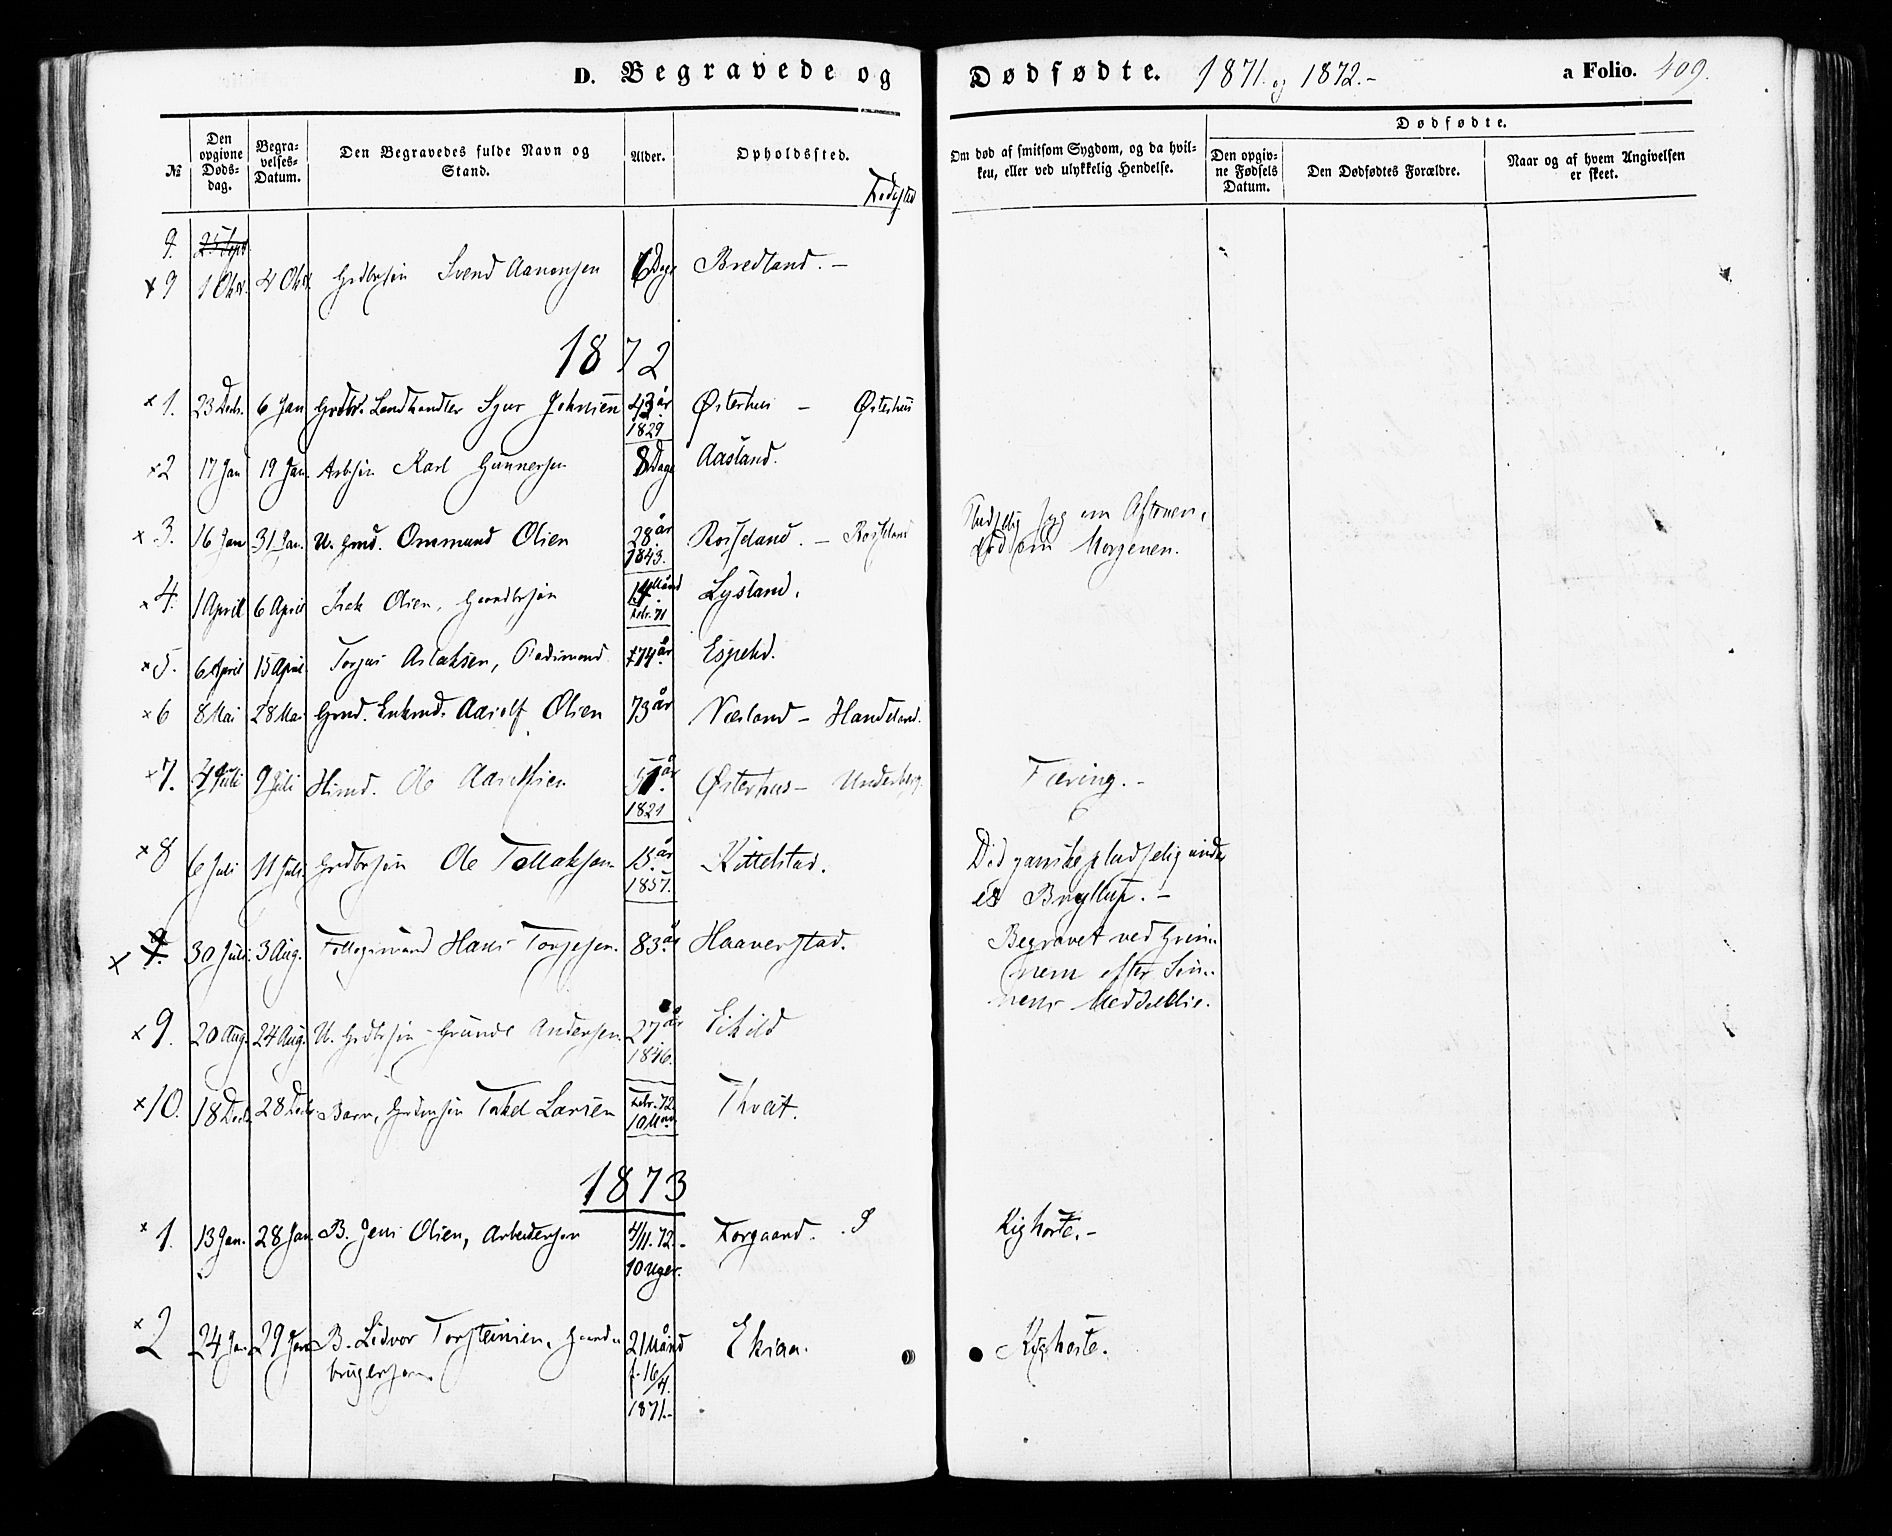 D. Begravede og Dødfødte. 1871. og 1872.- a Folio. 409.
№
Den opgivne Døds-dag.
Begra-velses-Datum.
Den Begravedes fulde Navn og Stand.
Alder.
Opholdssted.
Fødested
Om død af smitsom Sygdom, og da hvil-ken, eller ved ulykkelig Hendelse.
Dødfødte.
Den opgiv-ne Fødsels Datum.
Den Dødfødtes Forældre.
Naar og af hvem Angivelsen er skeet.
9. 25 Sept
x 9 1 Oktr. 4 Oktr. Grdbrsøn Svend Aanensen 6 Dage Bredland. -
1872
x 1. 23 Decb. 6 Jan Grdbr. Landhandler Johnsen 43 år Østerhus - Østerhus
1829
x 2 17 Jan 19 Jan. Arbsøn Karl Gunnersen 8 Dage Aasland.
x 3. 16 Jan 31 Jan. U. Gmd. Ommund Olsen 28 år Rosseland. - Rosseland Pludselig syg om Aftenen,
1843. død om Morgenen.
x 4. 1 April 6 April Isak Olsen, Gaardbrsøn 14 Månd Lysland.
Febr. 71
x 5. 6 April 15 April Torjus Aslaksen, 74 år. Espelid.
x 6 8 Mai 28 Mai Gmd. Enkmd. Aasolf Olsen 73 år Næsland - Handeland.
x 7. 4 Juli 9 Juli Hsmd. Ole 51 år. Østerhus - Underberg. Tæring. -
1821
x 8 6 Juli 11 Juli. Grdbrsøn Ole Tellaksen 15 år. Kittelstad. Død ganske pludselig under
1857. et Bryllup. -
x 30 Juli. 3 Aug. Hans Torjesen. 83 år Haaverstad. Begravet ved Grim-
nem efter Søn-
nens Meddelelse.
x 9. 20 Aug. 24 Aug. U. Grdbrsøn Gunde Andersen. 27 år Eikild
1846.
x 10. 18 Decb. 28 Decb. Barn, Grdmsøn Tarkel Larsen Febr. 72. Thveit.
10 Mnd
1873
x 1. 13 Jan. 28 Jan. B. Jens Olsen, Arbeidersøn 4/11. 72. - Forgaard. Kighoste. -
10 Uger.
x 2 24 Jan. 29 Jan B. Lidvor Torsteinsen, Gaard- 21 Månd Ekraa. Kighoste.
brugersøn. f. 16/4.
1871. -